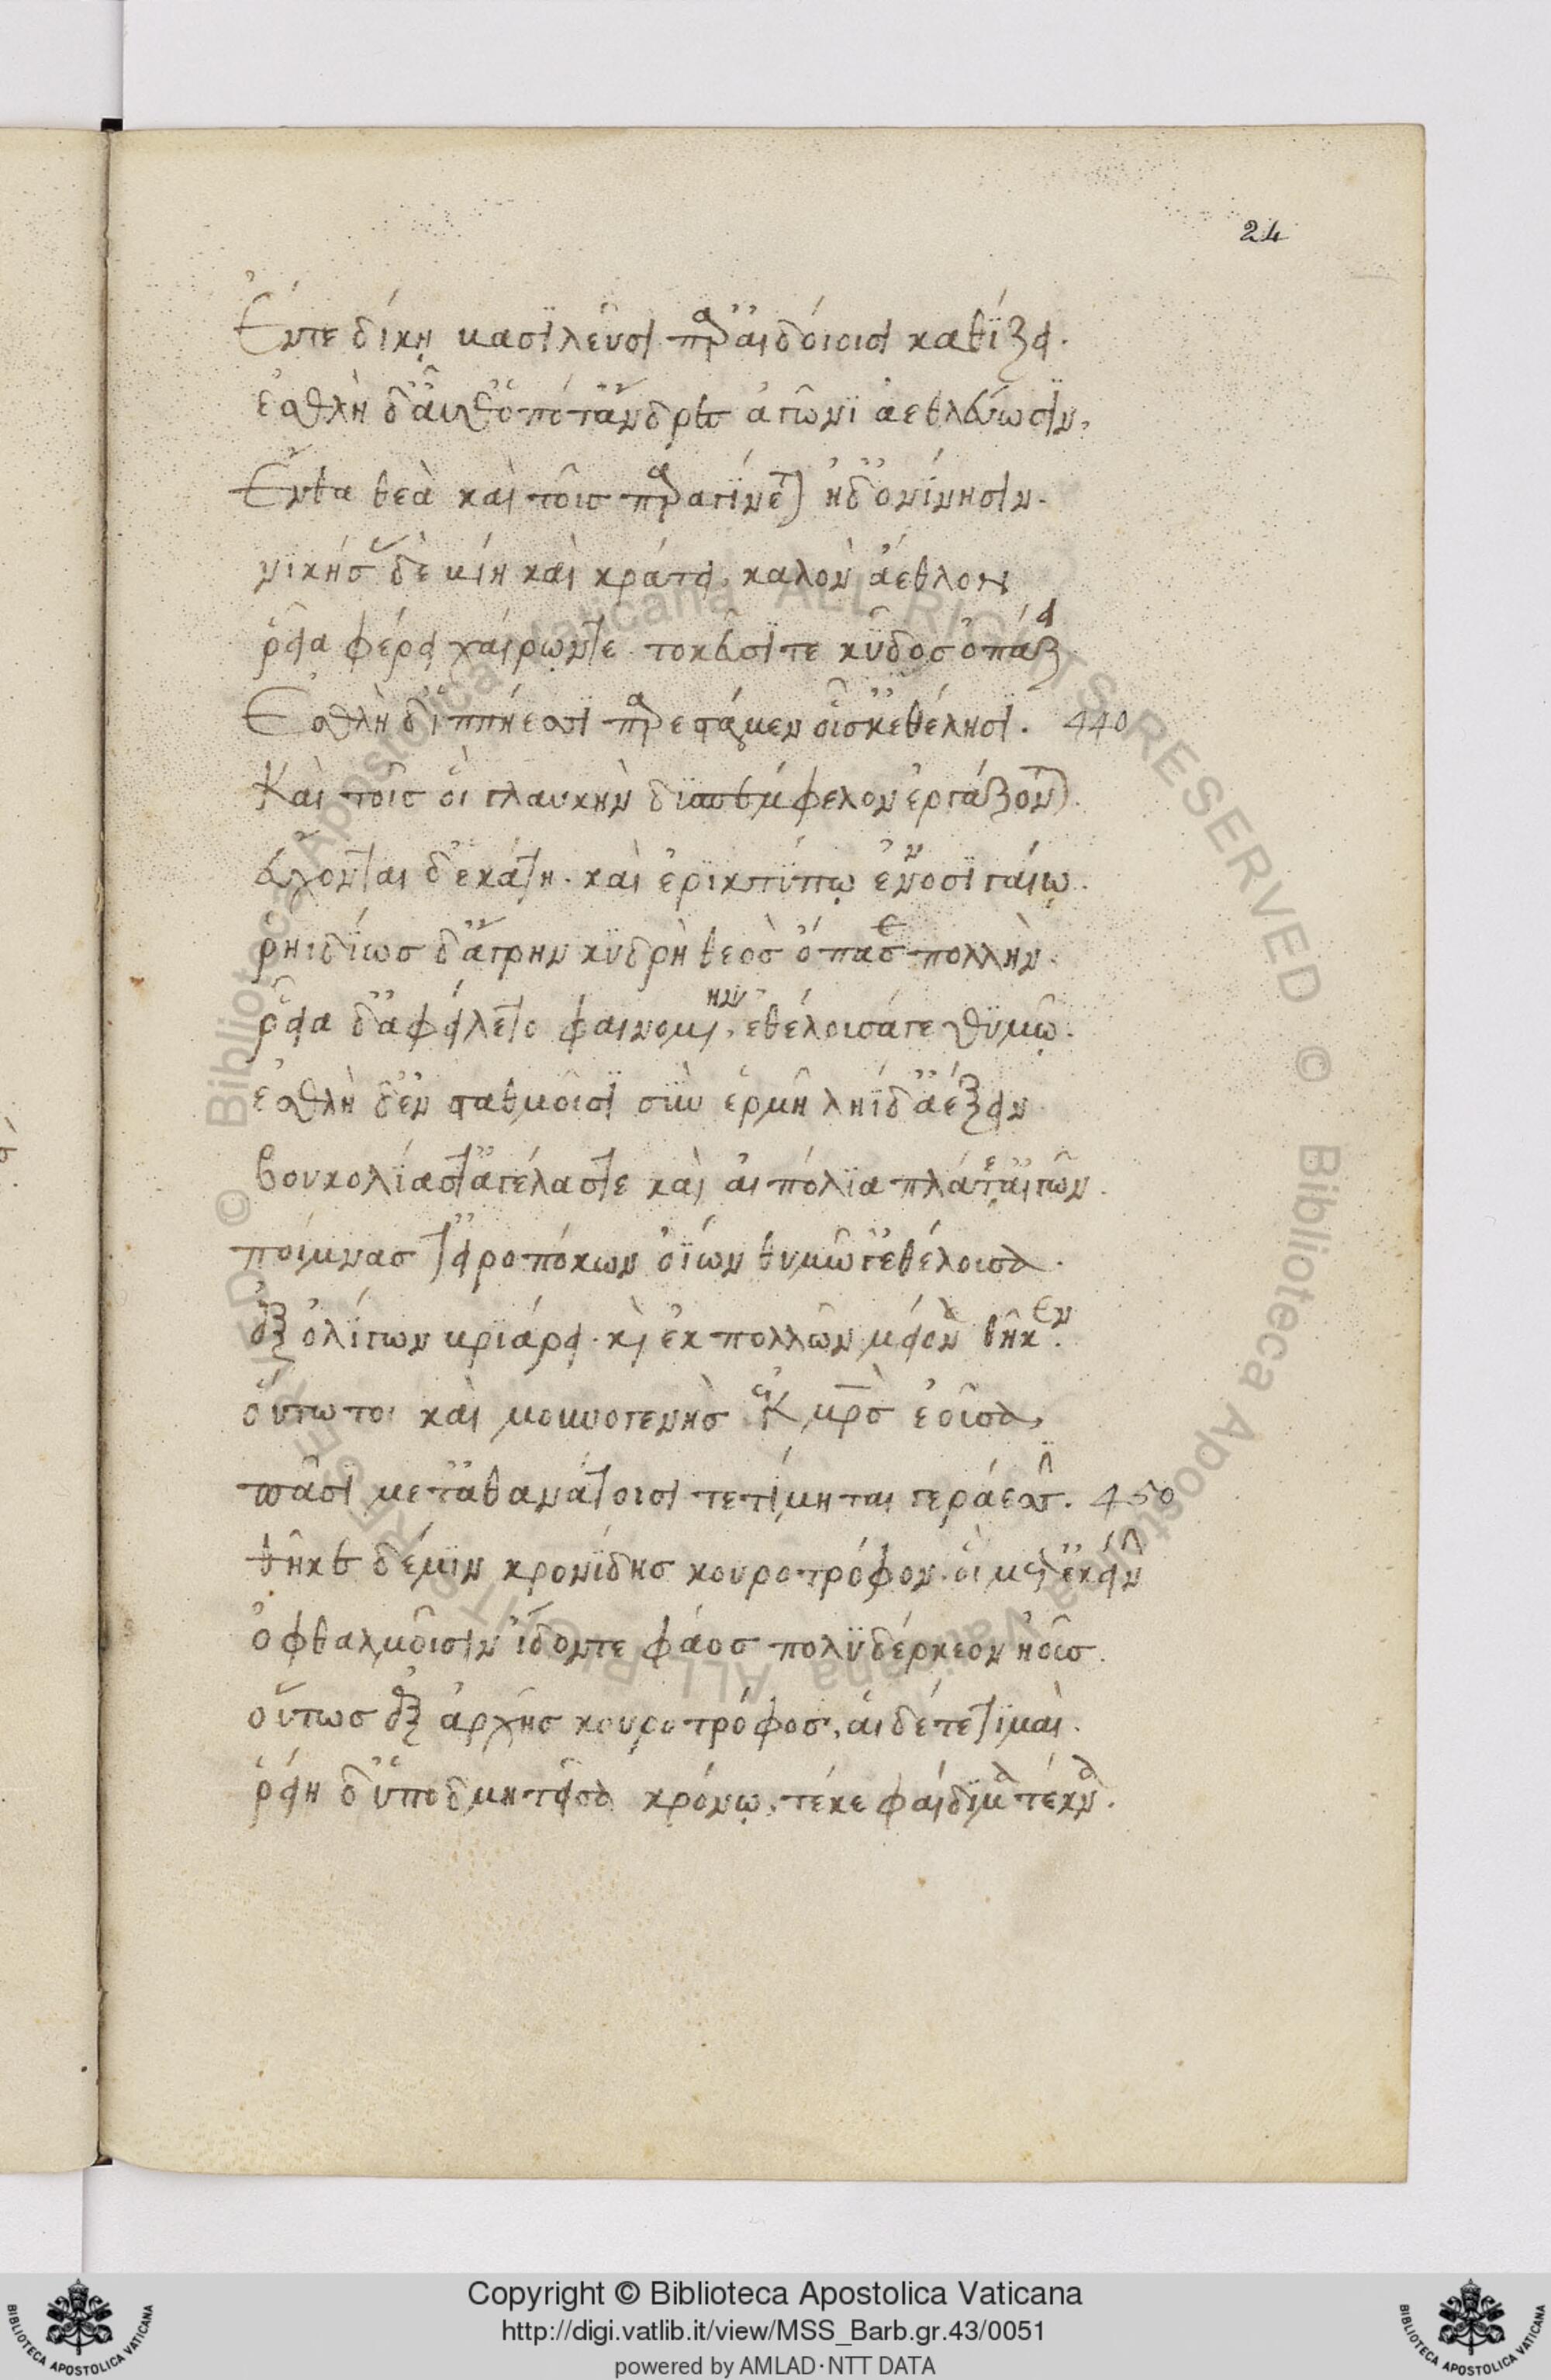 24
Ἔντε δίκῃ βασϊλεῦσι παρ' αἰδοίοισι καθΐζει.
ἐσθλὴ δ' αὖθ' ὁπότ' ἄνδρες ἀγῶνϊ ἀεθλεύωσϊν,
Ἔνθα θεὰ καὶ τοῖς παραγΐνεται ἠδ' ὀνίνησιν.
νικήσας δὲ βίῃ καὶ κράτει, καλὸν ἄεθλον
ῥεῖα φέρει χαίρων τε τοκεῦσΐ τε κῦδος ὀπάζει
Ἐσθλὴ δ' ἱππήεσσι παρεστάμεν οἷς κ' ἐθέλησϊ. 440
Καὶ τοῖς οἳ γλαυκὴν δϊσπέμφελον ἐργάζονται.
εὔχονται δ' ἑκάτῃ. καὶ ἐρϊκτύπῳ ἐννοσϊγαίῳ.
ῥηιδΐως δ' ἄγρην κϋδρὴ θεὸς ὤπασε πολλὴν.
ῥεῖα δ' ἀφείλετο φαινομένην, ἐθέλουσά γε θϋμῷ.
ἐσθλὴ δ' ἐν σταθμοῖσϊ σὺν ἑρμῇ ληΐδ' ἀέξειν
βουκολίας τ' ἀγέλας τε καὶ αἰπόλϊα πλατέ' αἰγῶν.
ποίμνας τ' εἰροπόκων ὀΐων θυμῷ γ' ἐθέλουσα.
ἐξ ὀλΐγων βρϊάρει. κὶ ἐκ πολλῶν μείονα θῆκεν.
οὕτω τοι καὶ μουνογενὴς ἐκ μρὸς ἐοῦσα,
πᾶσι μετ' ἀθανάτοισι τετίμηται γεράεσσϊν. 450
θῆκε δέ μϊν κρονΐδης κουροτρόφον. οἳ μετ' ἐκείνην
ὀφθαλμοῖσιν ἴδοντο φάος πολϋδερκέος ἠοῦς.
οὕτως ἐξ ἀρχῆς κουροτρόφος, αἳ δέ τε τιμαὶ.
ῥείη δ' ὑποδμηθεῖσα κρόνῳ, τέκε φαίδϊμα τέκνα.
Copyright © Biblioteca Apostolica Vaticana
http://digi.vatlib.it/view/MSS_Barb.gr.43/0051
powered by AMLAD·NTT DATA